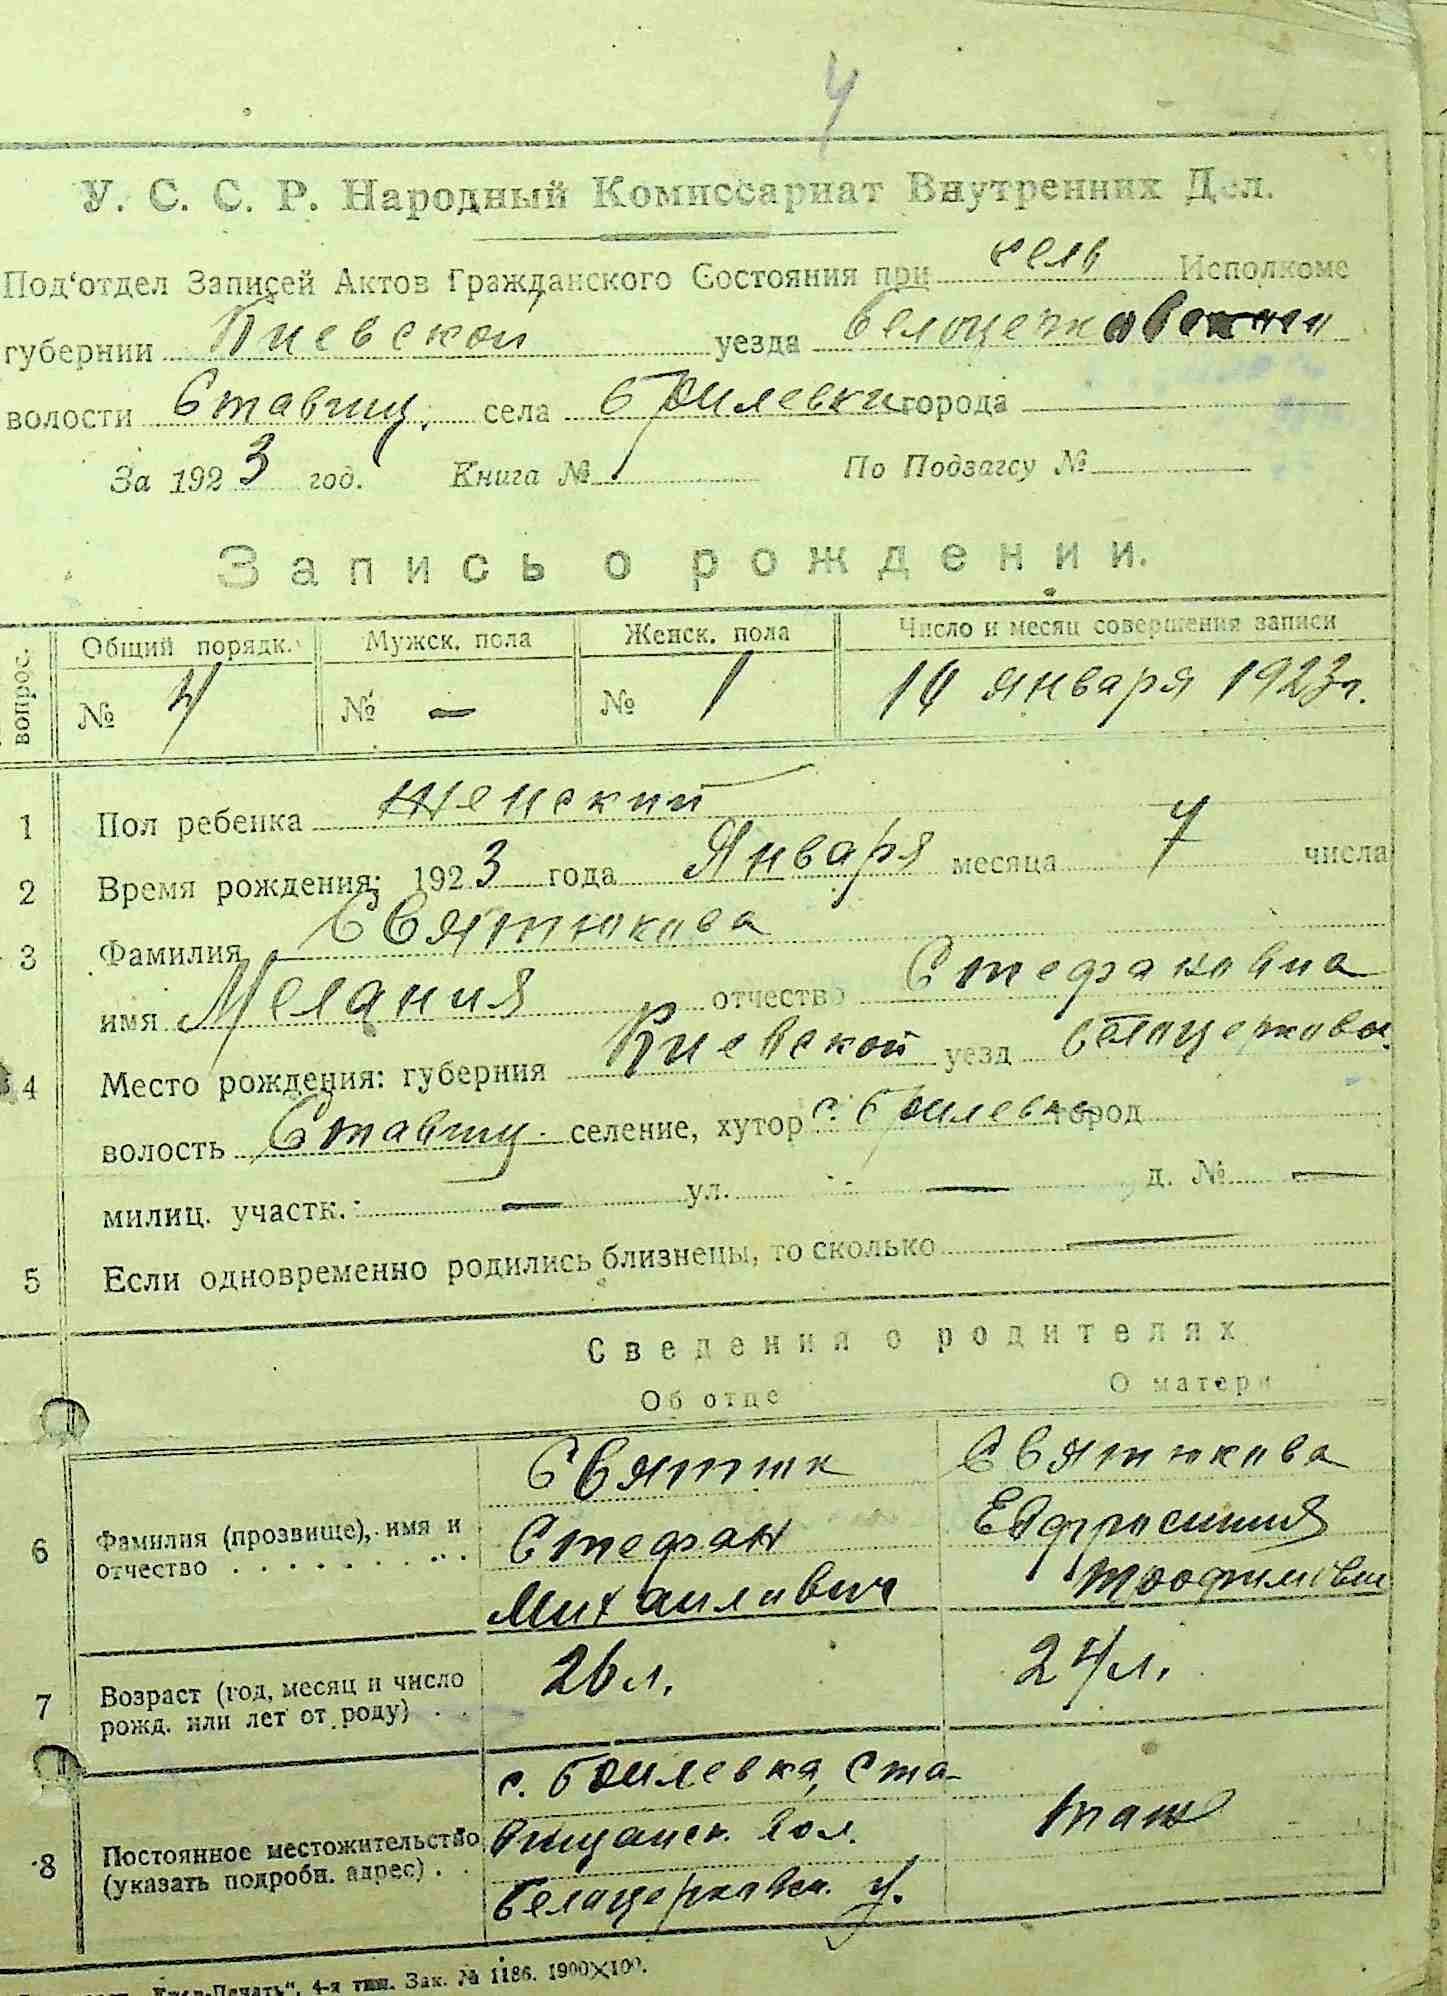 4
У. С. С. Р. Народный Комиссариат Внутренних Дел.
Под'отдел Записей Актов Гражданского Состояния при сель Исполкоме
губернии Киевской уезда
волости Ставищ. села Брилевки города
За 1923 год. Книга № По Подзагсу №
Запись о рождении.
вопрос. Общий порядк. Мужск. пола Женск. пола Число и месяц совершения записи
№ 4 № — № 1 января 1923 г.
1 Пол ребенка Женский
2 Время рождения: 1923 года Января месяца 7 числа
3 Фамилия Святюкова
имя Мелания отчество Стефановна
4 Место рождения: губерния Киевской уезд Белоцерковск.
волость Ставищ. селение, хутор с. Брилевка город
милиц. участк. — ул. — д. № —
5 Если одновременно родились близнецы, то сколько —
Сведения о родителях
Об отце О матери
Святюк Святюкова
6 Фамилия (прозвище), имя и отчество Стефан Евфросиния
Михаилович Трофимовна
7 Возраст (год, месяц и число рожд. или лет от роду) 26 л. 24 л.
с. Брилевка, Ста-
8 Постоянное местожительство (указать подробн. адрес) вищанск. вол. таж
Белоцерковск. у.
4-я тип. Зак. № 1186. 1900×100.